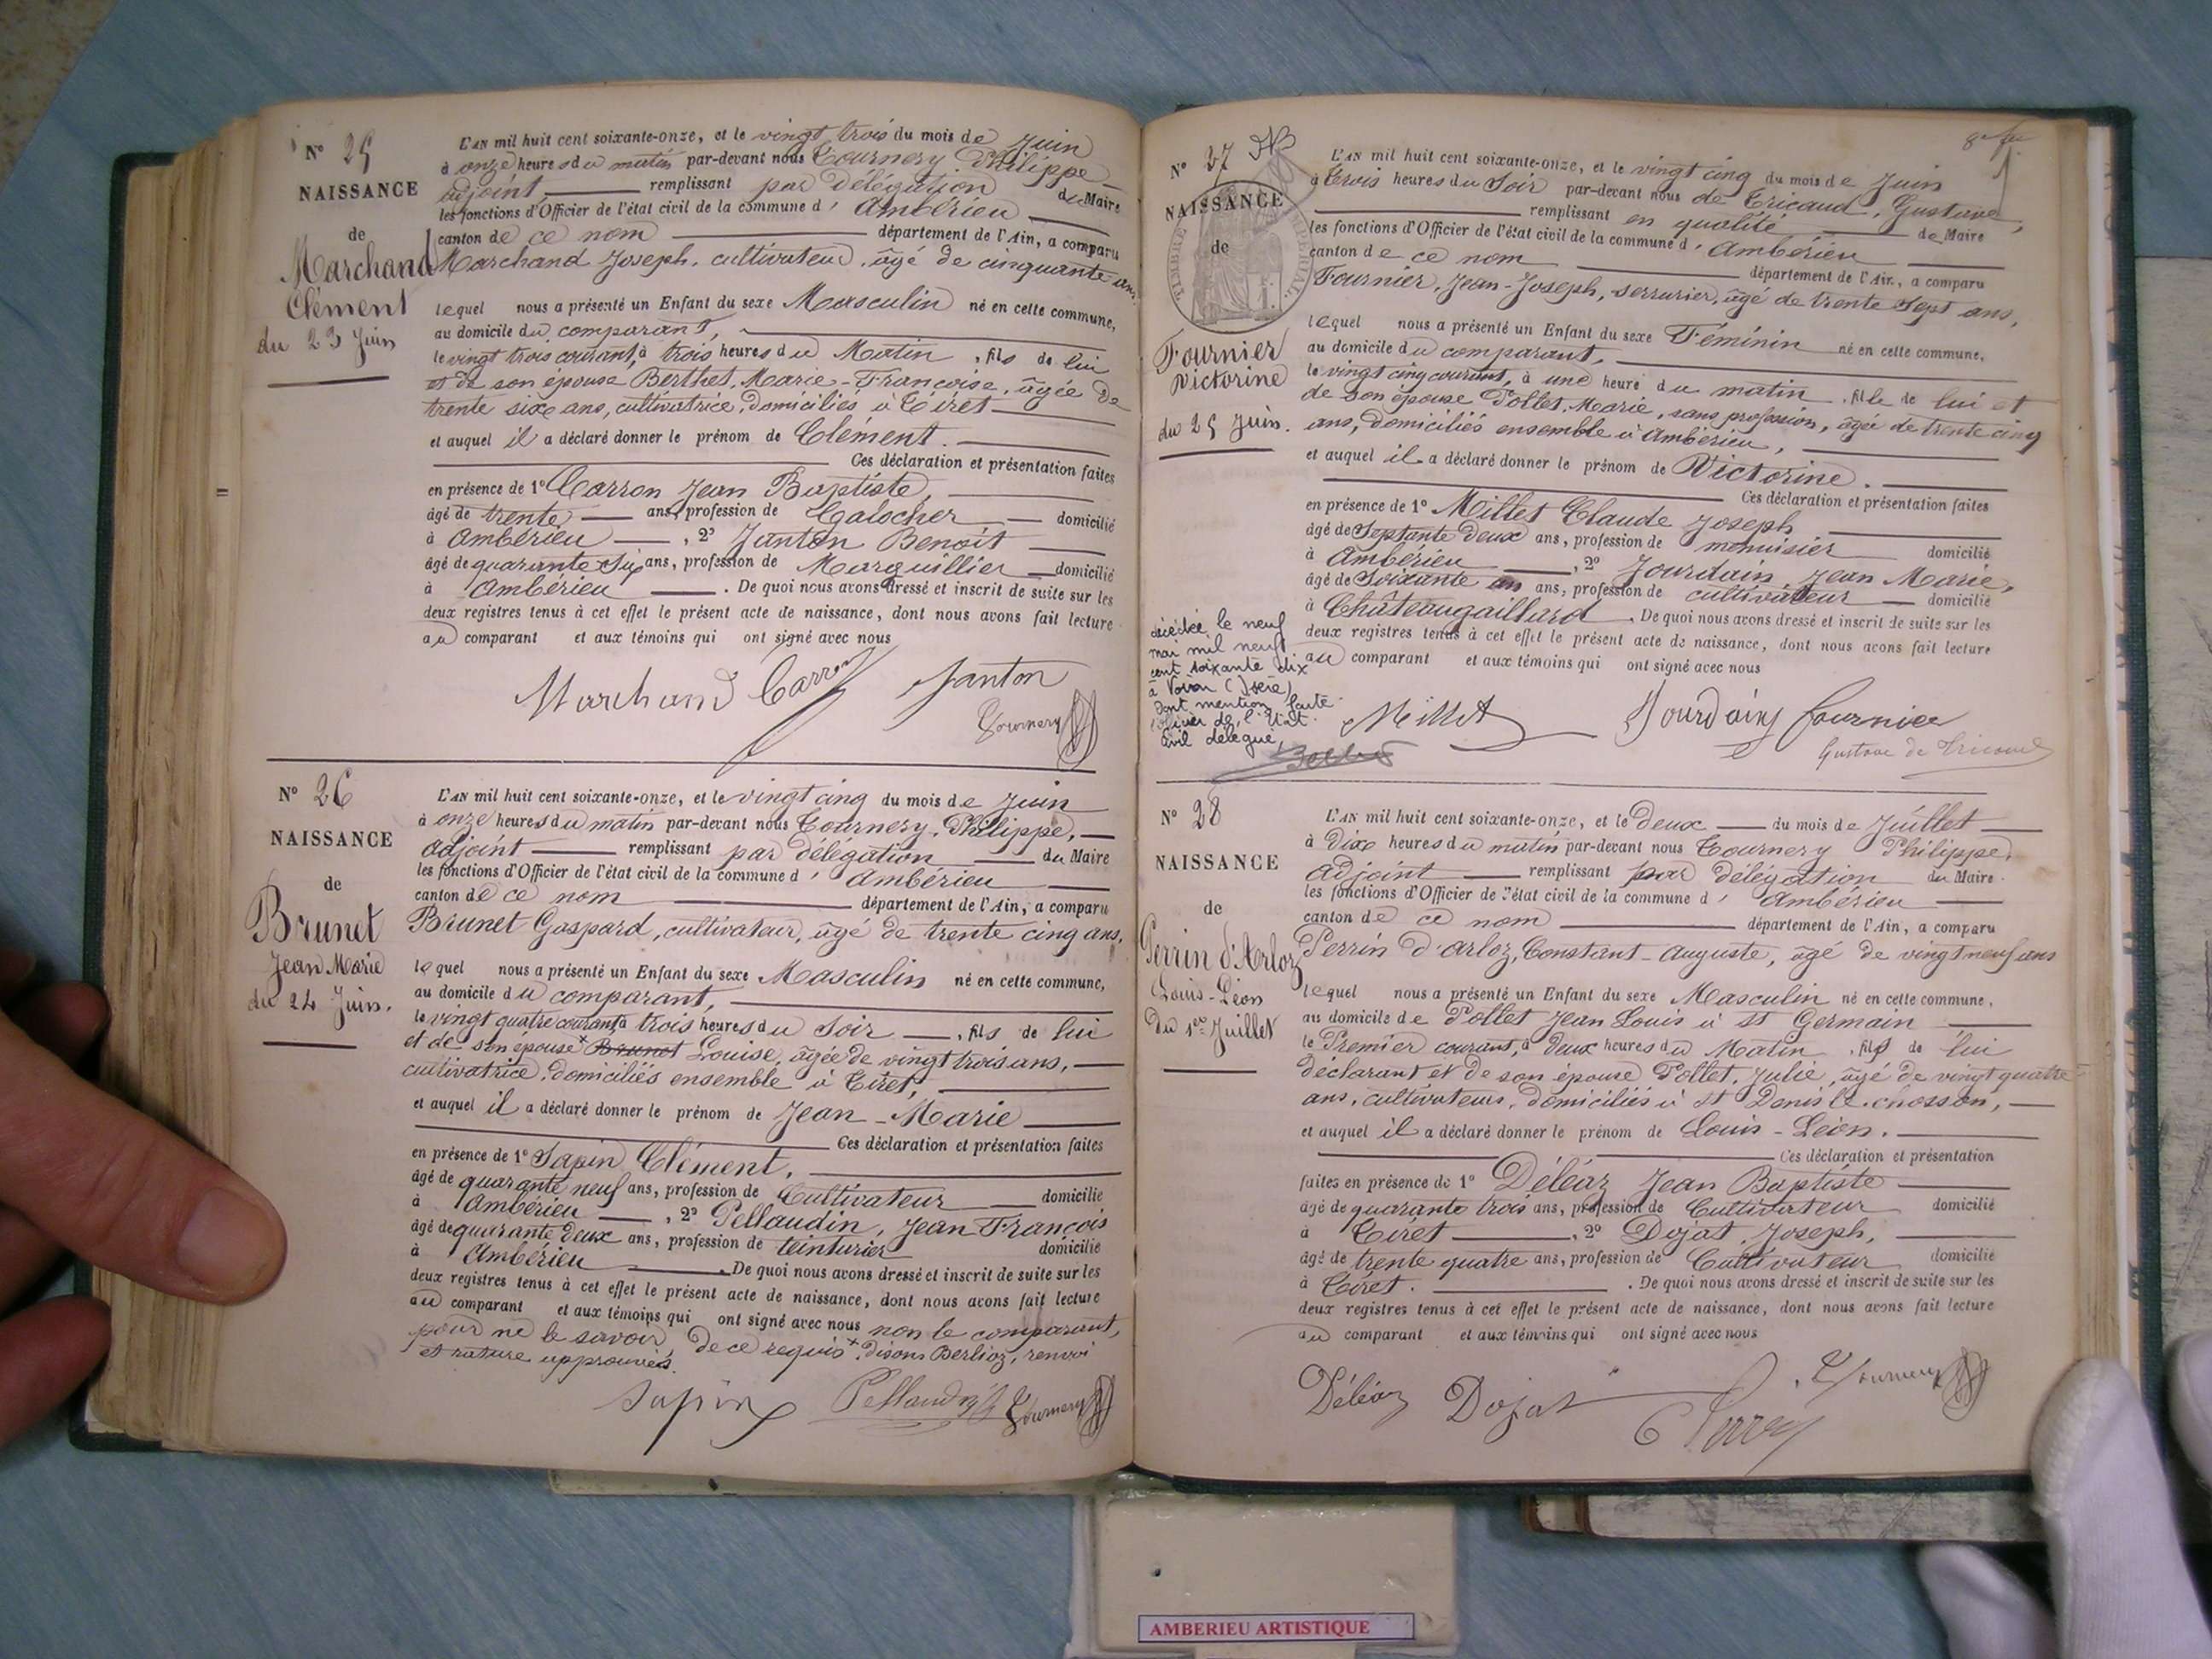 N° 25
NAISSANCE
de
Marchand
Clément
du 23 Juin
L'AN mil huit cent soixante-onze, et le vingt trois du mois de Juin
à onze heures du matin par-devant nous Tournery Philippe
adjoint remplissant par délégation du Maire
les fonctions d'Officier de l'état civil de la commune d' Ambérieu
canton de ce nom département de l'Ain, a comparu
Marchand Joseph, cultivateur, âgé de cinquante ans,
lequel nous a présenté un Enfant du sexe Masculin né en cette commune,
au domicile du comparant,
le vingt trois courant, à trois heures du Matin , fils de lui
et de son épouse Berthet, Marie-Françoise, âgée de
trente six ans, cultivatrice, domiciliés à Tiret
et auquel il a déclaré donner le prénom de Clément.
Ces déclaration et présentation faites
en présence de 1° Carron Jean Baptiste,
âgé de trente ans, profession de Galocher domicilié
à Ambérieu , 2° Janton Benoit
âgé de quarante six ans, profession de Marguillier domicilié
à Ambérieu . De quoi nous avons dressé et inscrit de suite sur les
deux registres tenus à cet effet le présent acte de naissance, dont nous avons fait lecture
au comparant et aux témoins qui ont signé avec nous
Marchand Carron Janton
Tournery
N° 26
NAISSANCE
de
Brunet
Jean Marie
du 24 Juin.
L'AN mil huit cent soixante-onze, et le vingt cinq du mois de Juin
à onze heures du matin par-devant nous Tournery, Philippe,
adjoint remplissant par délégation du Maire
les fonctions d'Officier de l'état civil de la commune d' Ambérieu
canton de ce nom département de l'Ain, a comparu
Brunet Gaspard, cultivateur, âgé de trente cinq ans,
lequel nous a présenté un Enfant du sexe Masculin né en cette commune,
au domicile du comparant,
le vingt quatre courant à trois heures du Soir , fils de lui
et de son épouse × Brunet Louise, âgée de vingt trois ans,
cultivatrice, domiciliés ensemble à Tiret,
et auquel il a déclaré donner le prénom de Jean-Marie
Ces déclaration et présentation faites
en présence de 1° Sapin Clément,
âgé de quarante neuf ans, profession de Cultivateur domicilié
à Ambérieu , 2° Pellaudin, Jean François
âgé de quarante deux ans, profession de teinturier domicilié
à Ambérieu . De quoi nous avons dressé et inscrit de suite sur les
deux registres tenus à cet effet le présent acte de naissance, dont nous avons fait lecture
au comparant et aux témoins qui ont signé avec nous non le comparant,
pour ne le savoir, de ce requis × disons Berlioz, renvoi
et rature approuvés.
Sapin Pellaudin Tournery
N° 27
NAISSANCE
de
Fournier
Victorine
du 25 Juin.
décédée le neuf
mai mil neuf
cent soixante dix
à Voiron (Isère)
Dont mention faite
Officier de l'Etat
Civil délégué,
L'AN mil huit cent soixante-onze, et le vingt cinq du mois de Juin
à trois heures du Soir par-devant nous de Tricaud, Gustave,
remplissant en qualité de Maire
les fonctions d'Officier de l'état civil de la commune d' Ambérieu
canton de ce nom département de l'Ain, a comparu
Fournier, Jean-Joseph, serrurier, âgé de trente Sept ans,
lequel nous a présenté un Enfant du sexe Féminin né en cette commune,
au domicile du comparant,
le vingt cinq courant, à une heure du matin , fille de lui et
de son épouse Pollet, Marie, sans profession, âgée de trente cinq
ans, domiciliés ensemble à Ambérieu,
et auquel il a déclaré donner le prénom de Victorine.
Ces déclaration et présentation faites
en présence de 1° Millet Claude Joseph
âgé de Septante deux ans, profession de menuisier domicilié
à Ambérieu , 2° Jourdain, Jean Marie,
âgé de Soixante ans, profession de cultivateur domicilié
à Châteaugaillard . De quoi nous avons dressé et inscrit de suite sur les
deux registres tenus à cet effet le présent acte de naissance, dont nous avons fait lecture
au comparant et aux témoins qui ont signé avec nous
Millet Jourdain fournier
Gustave de Tricaud
N° 28
NAISSANCE
de
Perrin d'Arloz
Louis-Léon
Du 1er Juillet
L'AN mil huit cent soixante-onze, et le Deux du mois de Juillet
à Dix heures du matin par-devant nous Tournery Philippe,
adjoint remplissant par délégation du Maire
les fonctions d'Officier de l'état civil de la commune d' Ambérieu
canton de ce nom département de l'Ain, a comparu
Perrin d'Arloz, Constant-Auguste, âgé de vingt neuf ans
lequel nous a présenté un Enfant du sexe Masculin né en cette commune,
au domicile de Pollet Jean Louis à St Germain
le Premier courant, à deux heures du Matin , fils de lui
déclarant et de son épouse Pollet, Julie, âgé de vingt quatre
ans, cultivateurs, domiciliés à St Denis le chosson,
et auquel il a déclaré donner le prénom de Louis-Léon.
Ces déclaration et présentation
faites en présence de 1° Déléaz Jean Baptiste
âgé de quarante trois ans, profession de Cultivateur domicilié
à Tiret , 2° Dojat, Joseph,
âgé de trente quatre ans, profession de Cultivateur domicilié
à Tiret. . De quoi nous avons dressé et inscrit de suite sur les
deux registres tenus à cet effet le présent acte de naissance, dont nous avons fait lecture
au comparant et aux témoins qui ont signé avec nous
Déléaz Dojat Perrin Tournery
AMBERIEU ARTISTIQUE